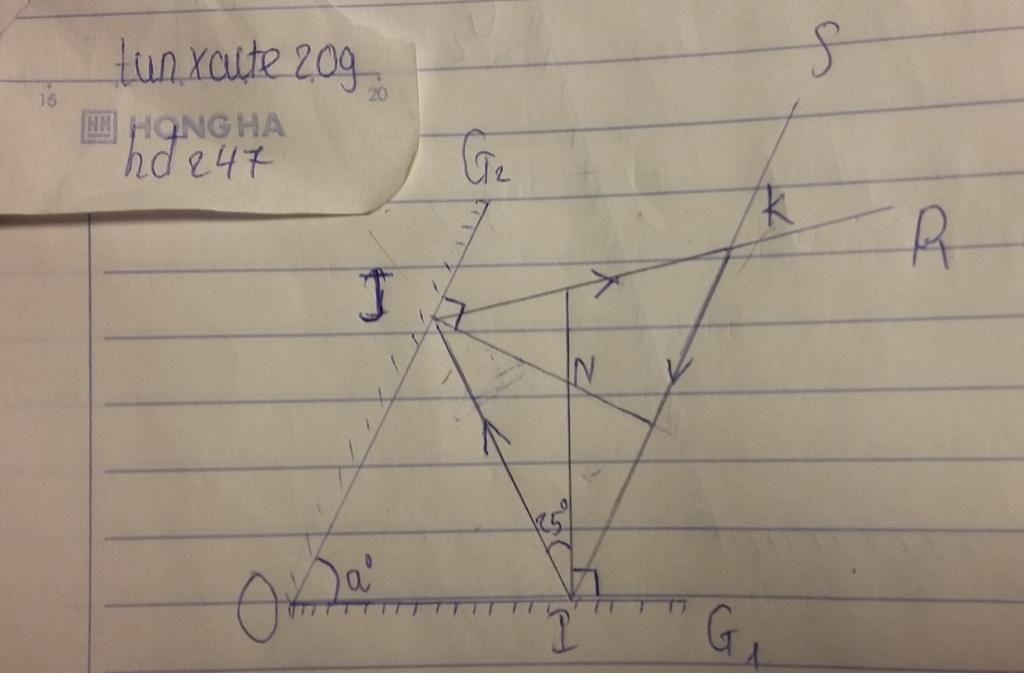 tunxaute 20g
15 20
HH HONG HA
hd 247
S
G2
K
R
J
N
25°
a°
O
I
G1